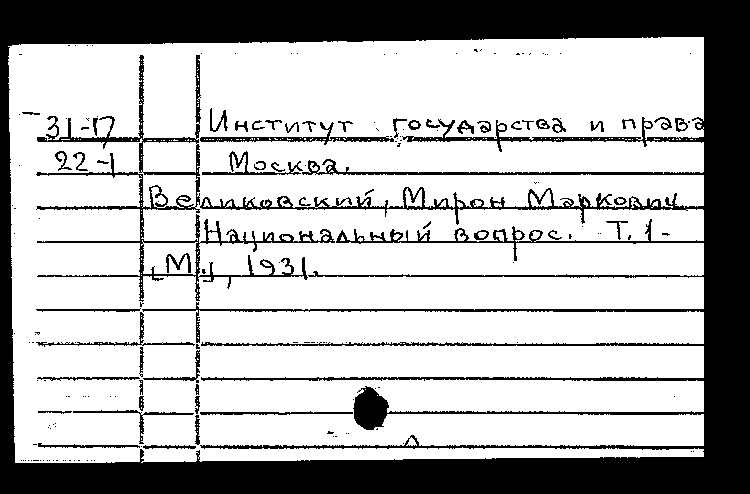 31-17 Институт государства и права
22-1 Москва.
Великовский, Мирон Маркович
Национальный вопрос. Т. 1-
[М.], 1931.